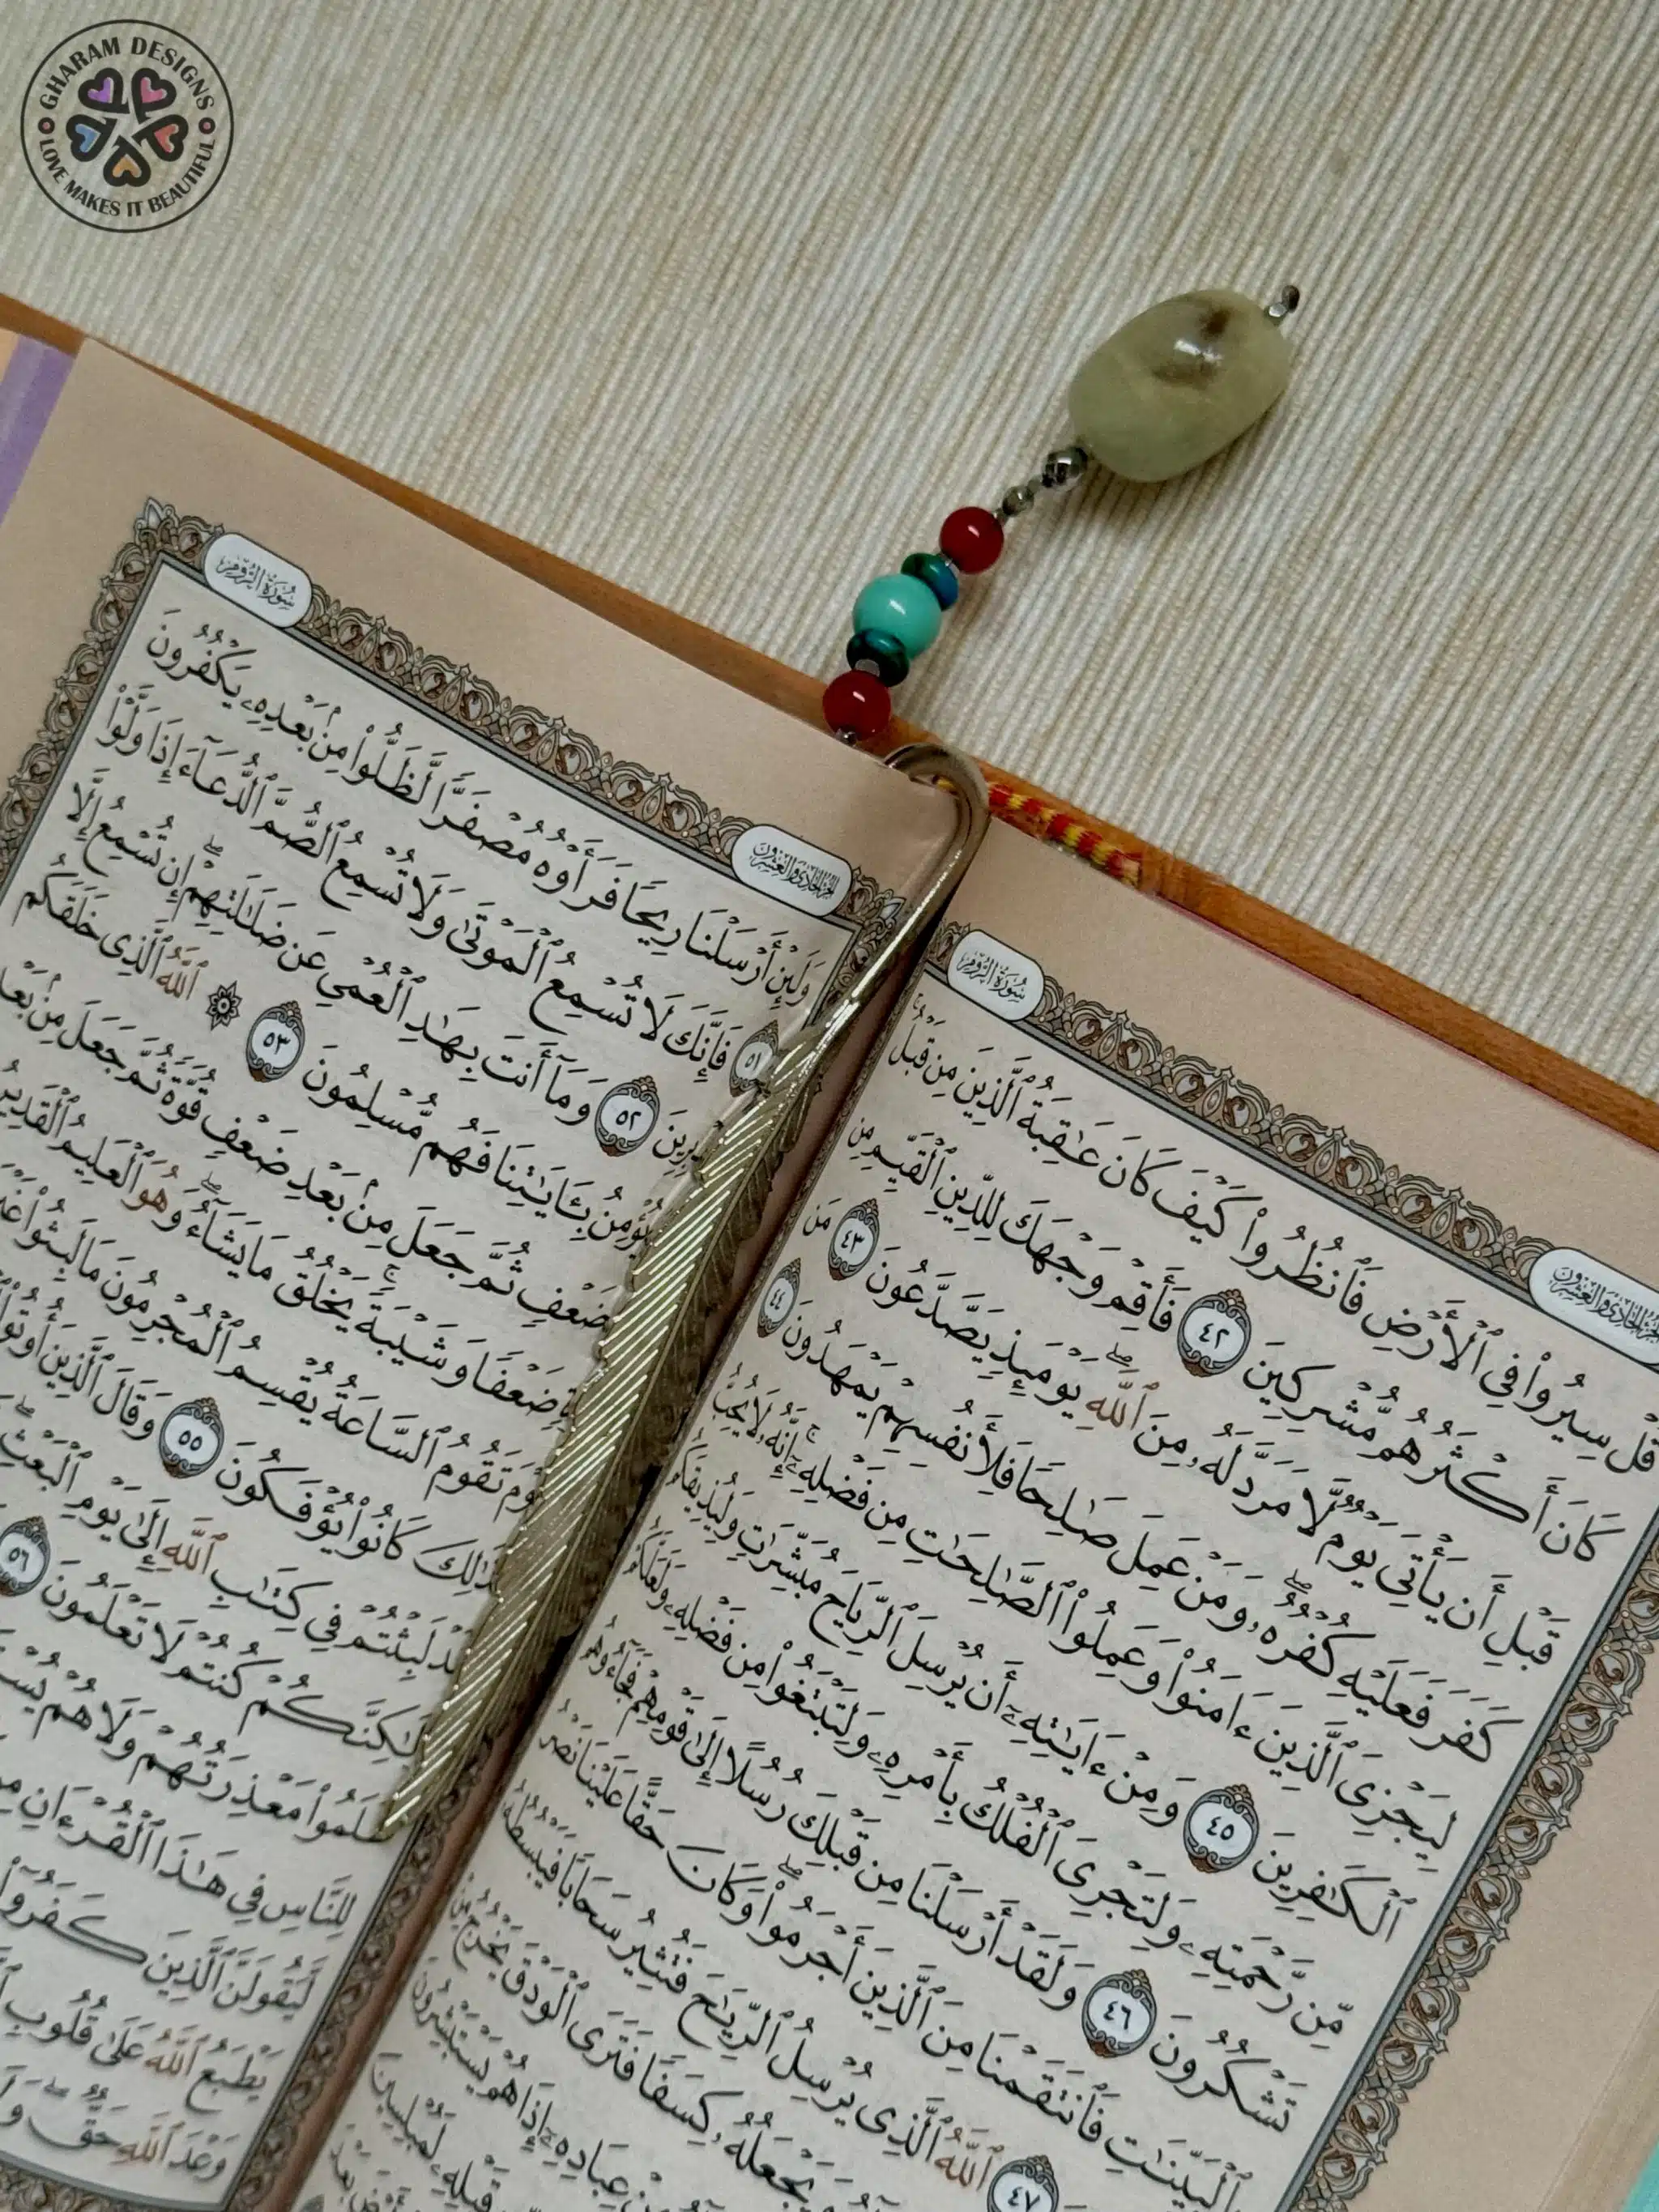 GHARAM DESIGNS
LOVE MAKES IT BEAUTIFUL
سُورَةُ الرُّومِ
الجزء الحادي والعشرون
قُلْ سِيرُوا۟ فِي ٱلْأَرْضِ فَٱنظُرُوا۟ كَيْفَ كَانَ عَـٰقِبَةُ ٱلَّذِينَ مِن قَبْلُ ۚ
كَانَ أَكْثَرُهُم مُّشْرِكِينَ ٤٢ فَأَقِمْ وَجْهَكَ لِلدِّينِ ٱلْقَيِّمِ مِن
قَبْلِ أَن يَأْتِىَ يَوْمٌ لَّا مَرَدَّ لَهُۥ مِنَ ٱللَّهِ ۖ يَوْمَئِذٍ يَصَّدَّعُونَ ٤٣ مَن
كَفَرَ فَعَلَيْهِ كُفْرُهُۥ ۖ وَمَنْ عَمِلَ صَـٰلِحًا فَلِأَنفُسِهِمْ يَمْهَدُونَ ٤٤
لِيَجْزِىَ ٱلَّذِينَ ءَامَنُوا۟ وَعَمِلُوا۟ ٱلصَّـٰلِحَـٰتِ مِن فَضْلِهِۦٓ ۚ إِنَّهُۥ لَا يُحِبُّ
ٱلْكَـٰفِرِينَ ٤٥ وَمِنْ ءَايَـٰتِهِۦٓ أَن يُرْسِلَ ٱلرِّيَاحَ مُبَشِّرَٰتٍ وَلِيُذِيقَكُم
مِّن رَّحْمَتِهِۦ وَلِتَجْرِىَ ٱلْفُلْكُ بِأَمْرِهِۦ وَلِتَبْتَغُوا۟ مِن فَضْلِهِۦ وَلَعَلَّكُمْ
تَشْكُرُونَ ٤٦ وَلَقَدْ أَرْسَلْنَا مِن قَبْلِكَ رُسُلًا إِلَىٰ قَوْمِهِمْ فَجَآءُوهُم
بِٱلْبَيِّنَـٰتِ فَٱنتَقَمْنَا مِنَ ٱلَّذِينَ أَجْرَمُوا۟ ۖ وَكَانَ حَقًّا عَلَيْنَا نَصْرُ
٤٧ ٱللَّهُ ٱلَّذِى يُرْسِلُ ٱلرِّيَـٰحَ فَتُثِيرُ سَحَابًا فَيَبْسُطُهُۥ
يَجْعَلُهُۥ كِسَفًا فَتَرَى ٱلْوَدْقَ يَخْرُجُ مِنْ
عِبَادِهِۦٓ إِذَا هُمْ يَسْتَبْشِرُونَ
قَبْلِهِۦ لَمُبْلِسِينَ
سُورَةُ الرُّومِ
الجزء الحادي والعشرون
وَلَئِنْ أَرْسَلْنَا رِيحًا فَرَأَوْهُ مُصْفَرًّا لَّظَلُّوا۟ مِنۢ بَعْدِهِۦ يَكْفُرُونَ
٥١ فَإِنَّكَ لَا تُسْمِعُ ٱلْمَوْتَىٰ وَلَا تُسْمِعُ ٱلصُّمَّ ٱلدُّعَآءَ إِذَا وَلَّوْا۟
٥٢ وَمَآ أَنتَ بِهَـٰدِ ٱلْعُمْىِ عَن ضَلَـٰلَتِهِمْ ۖ إِن تُسْمِعُ إِلَّا
يُؤْمِنُ بِـَٔايَـٰتِنَا فَهُم مُّسْلِمُونَ ٥٣ ۞ ٱللَّهُ ٱلَّذِى خَلَقَكُم
ضَعْفٍ ثُمَّ جَعَلَ مِنۢ بَعْدِ ضَعْفٍ قُوَّةً ثُمَّ جَعَلَ مِنۢ
ضَعْفًا وَشَيْبَةً ۚ يَخْلُقُ مَا يَشَآءُ ۖ وَهُوَ ٱلْعَلِيمُ ٱلْقَدِيرُ
تَقُومُ ٱلسَّاعَةُ يُقْسِمُ ٱلْمُجْرِمُونَ مَا لَبِثُوا۟
كَانُوا۟ يُؤْفَكُونَ ٥٥ وَقَالَ ٱلَّذِينَ أُوتُوا۟
لَبِثْتُمْ فِى كِتَـٰبِ ٱللَّهِ إِلَىٰ يَوْمِ ٱلْبَعْثِ
كُنتُمْ لَا تَعْلَمُونَ ٥٦
مَعْذِرَتُهُمْ وَلَا هُمْ
لِلنَّاسِ فِى هَـٰذَا ٱلْقُرْءَانِ
لَّيَقُولَنَّ ٱلَّذِينَ كَفَرُوٓا۟
يَطْبَعُ ٱللَّهُ عَلَىٰ قُلُوبِ
وَعْدَ ٱللَّهِ حَقٌّ ۖ